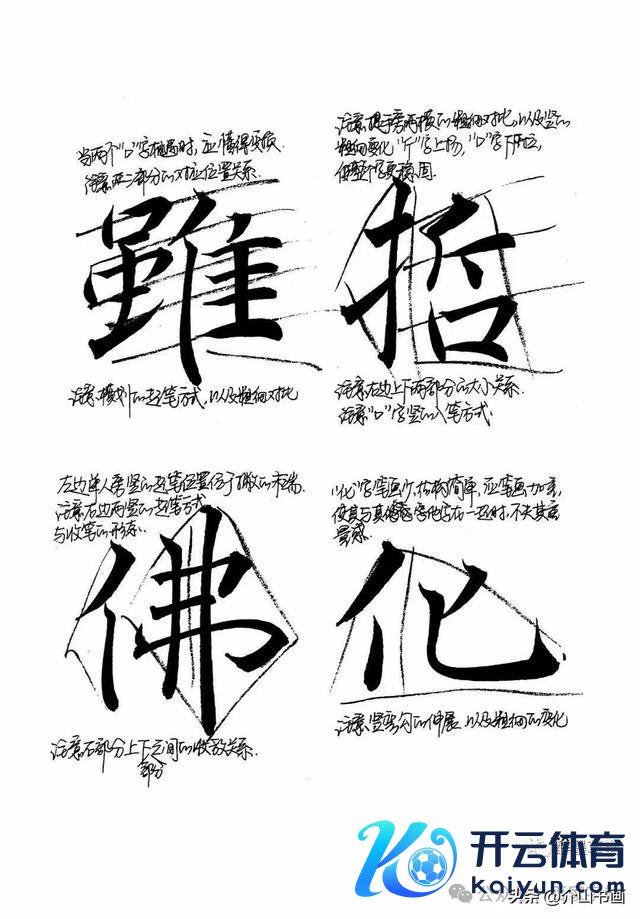 当两个“口”字相遇时,应懂得变换.
注意两部分的对应位置关系.
雖
注意横划的起笔方式,以及粗细对比
注意提手旁两横的粗细对比,以及竖的
粗细变化“斤”字上扬,“口”字下压,
使整个字更稳固.
哲
注意右边上下两部分的大小关系.
注意“口”字竖的入笔方式.
左边单人旁竖的起笔位置位于撇的末端.
注意右边两竖的起笔方式
与收笔的形态.
佛
注意右部分上下之间的收放关系.
部分
“化”字笔画少,结构简单,应笔画加重,
使其与其他字在一起时,不失其重
量感.
化
注意竖弯勾的伸展,以及粗细的变化
开云体育
kaiyun.com
公众
头条@介山书画